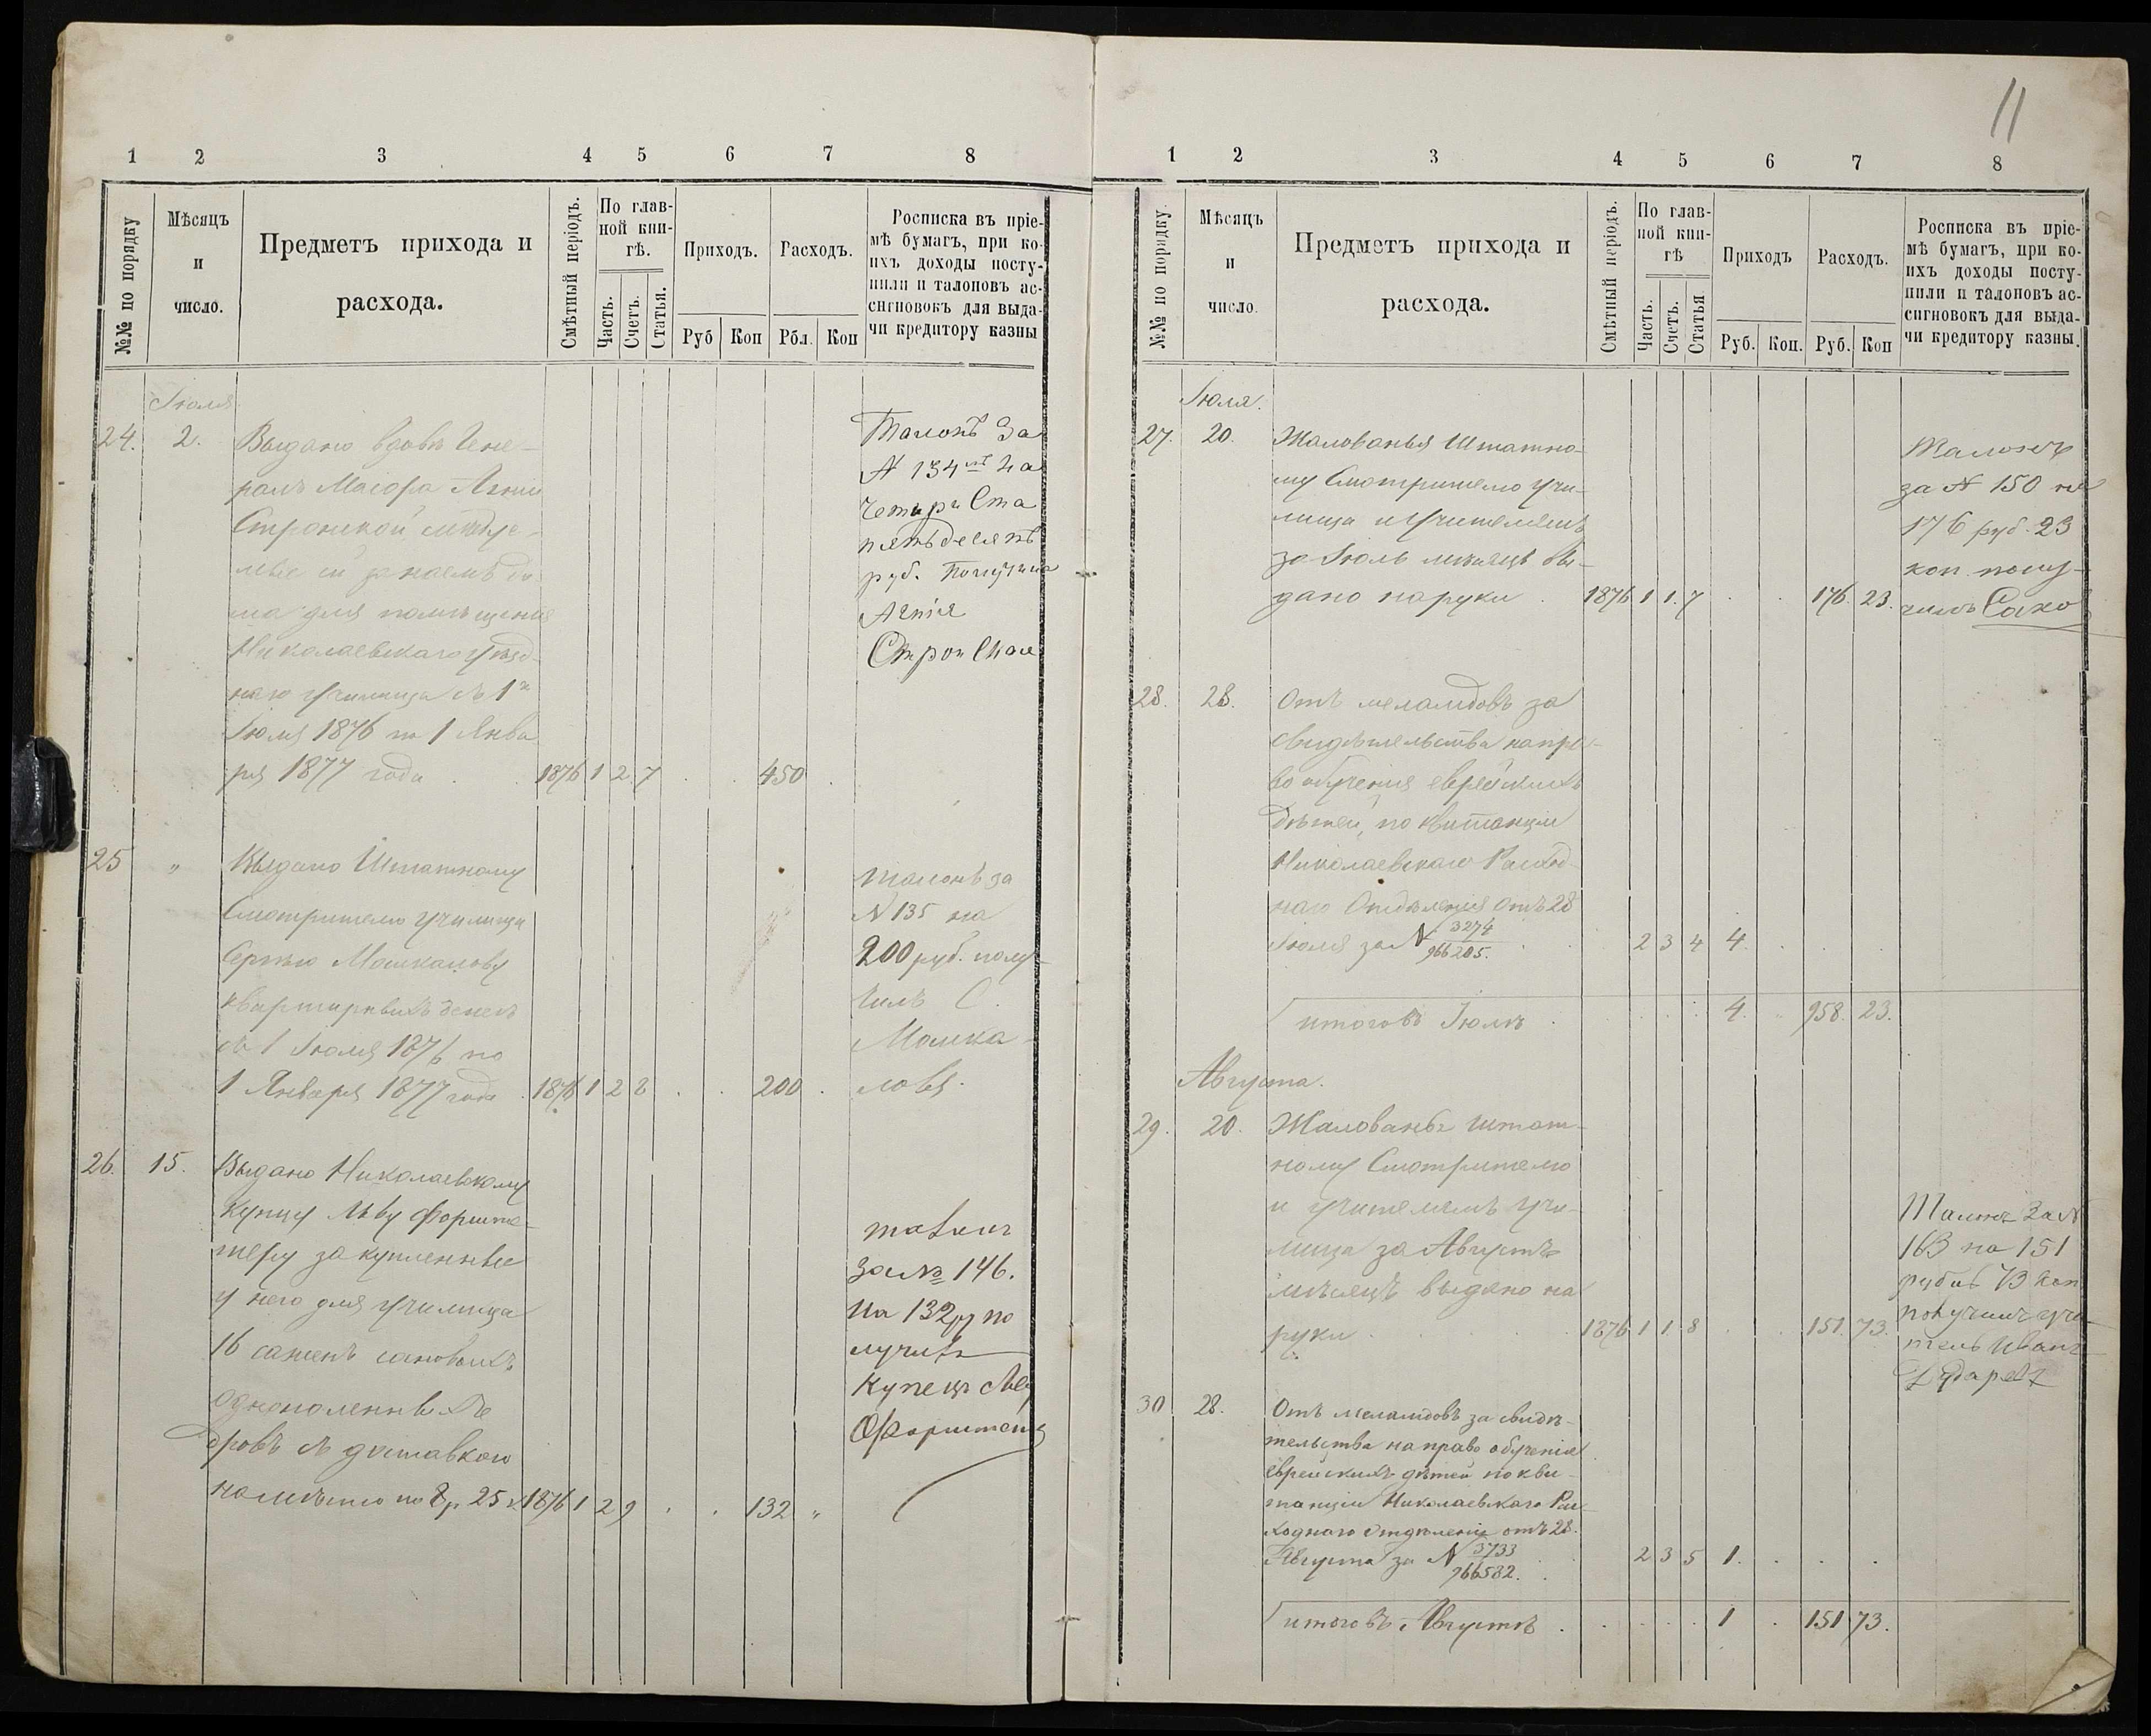 11
1 2 3 4 5 6 7 8
№№ по порядку
Мѣсяцъ
и
число.
Предметъ прихода и
расхода.
Смѣтный періодъ.
По глав-
ной кни-
гѣ.
Часть.
Счетъ.
Статья.
Приходъ.
Руб Коп
Расходъ.
Рбл. Коп
Росписка въ пріе-
мѣ бумагъ, при ко-
ихъ доходы посту-
пили и талоновъ ас-
сигновокъ для выда-
чи кредитору казны
Іюля
24. 2. Выдано вдовѣ Гене-
ралъ Маіора Агніи
Стронской
наемъ до-
ма для помѣщенія
Николаевскаго уѣзд-
наго училища съ 1го
Іюля 1876 по 1 Янва
ря 1877 года . 1876 1 2 7 . . 450 .
Талонъ за
№ 134мъ на
четыри ста
пятьдесятъ
руб. Получила
Агнія
Стронская
25 „ Выдано Штатному
Смотрителю училища
Сергѣю Машкалову
квартирныхъ денегъ
съ 1 Іюля 1876 по
1 Января 1877 года . 1876 1 2 8 . . 200 .
талонъ за
№ 135 на
200 руб. полу-
чилъ С.
Машка-
ловъ.
26. 15. Выдано Николаевскому
купцу Льву Форште-
теру за купленные
у него для училища
16 сажень
однополенныхъ
дровъ съ доставкою
на мѣсто по 8р 25 к 1876 1 2 9 . . 132 „
талонъ
за № 146.
на 132 р по
лучилъ
Купецъ Левъ
1 2 3 4 5 6 7 8
№№ по порядку.
Мѣсяцъ
и
число.
Предметъ прихода и
расхода.
Смѣтный періодъ.
По глав-
ной кни-
гѣ
Часть.
Счетъ.
Статья
Приходъ
Руб. Коп.
Расходъ.
Руб. Коп
Росписка въ пріе-
мѣ бумагъ, при ко-
ихъ доходы посту-
пили и талоновъ ас-
сигновокъ для выда-
чи кредитору казны.
Іюля.
27. 20. Жалованья Штатно-
му Смотрителю учи-
лища и Учителямъ
за Іюль мѣсяцъ вы-
дано на руки . 1876 1 1. 7 . . 176. 23.
Талонъ
за № 150 на
176 руб. 23
коп полу-
чилъ
28. 28. Отъ меламдовъ за
свидѣтельства на пра-
во обученія еврейскихъ
дѣтей, по квитанціи
Николаевскаго Расход-
наго Отдѣленія отъ 28
Іюля за № 3274
966205. . . 2 3 4 4. . . .
Итого въ Іюлѣ . . . . . 4. . 958. 23.
Августа.
29. 20. Жалованье штат-
ному Смотрителю
и учителямъ учи-
лища за Августъ
мѣсяцъ выдано на
руки . . . . 1876 1 1 8 . . 151. 73.
Талонъ за №
163 на 151
рубль 73 коп
получилъ учи-
тель Иванъ
30 28. Отъ меламдовъ за свидѣ-
тельства на право обученія
еврейскихъ дѣтей по кви-
танціи Николаевскаго Рас
ходнаго Отдѣленія отъ 28.
Августа за № 3733
966582. . . 2 3 5 1. . . .
Итого въ Августѣ . . . . . 1 . 151 73.